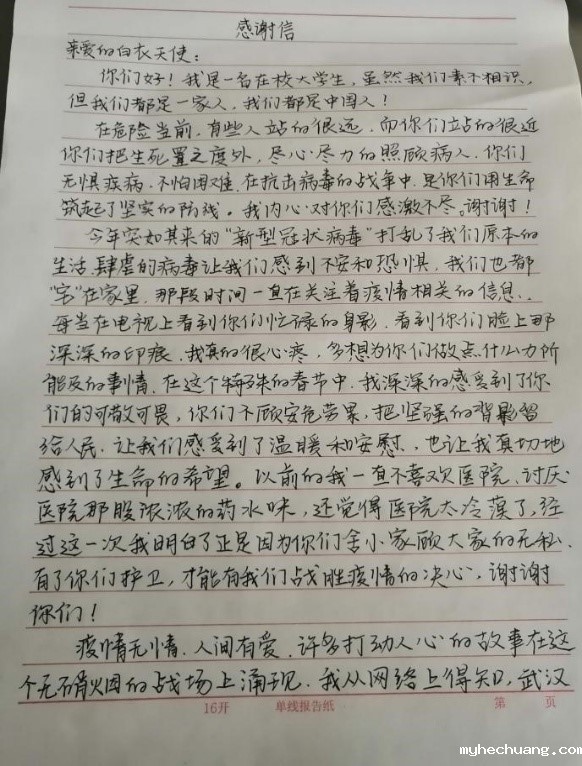 感谢信
亲爱的白衣天使：
你们好！我是一名在校大学生，虽然我们素不相识，
但我们都是一家人，我们都是中国人！
在危险当前，有些人站的很远，而你们站的很近
你们把生死置之度外，尽心尽力的照顾病人．你们
无惧疾病．不怕困难．在抗击病毒的战争中．是你们用生命
筑起了坚实的防线。我内心对你们感激不尽。谢谢！
今年突如其来的“新型冠状病毒”打乱了我们原本的
生活．肆虐的病毒让我们感到不安和恐惧，我们也都
“宅”在家里．那段时间一直在关注着疫情相关的信息．
每当在电视上看到你们忙碌的身影．看到你们脸上那
深深的印痕．我真的很心疼，多想为你们做点什么力所
能及的事情．在这个特殊的春节中．我深深的感受到了你
们的可敬可畏，你们不顾安危劳累，把坚强的背影留
给人民．让我们感受到了温暖和安慰．也让我真切地
感到了生命的希望。以前的我一直不喜欢医院．讨厌
医院那股浓浓的药水味，还觉得医院太冷漠了，经
过这一次我明白了正是因为你们舍小家顾大家的无私．
有了你们护卫，才能有我们战胜疫情的决心，谢谢
你们！
疫情无情．人间有爱．许多打动人心的故事在这
个无硝烟的战场上涌现．我从网络上得知，武汉
16开 单线报告纸 第 页
www.myhechuang.com